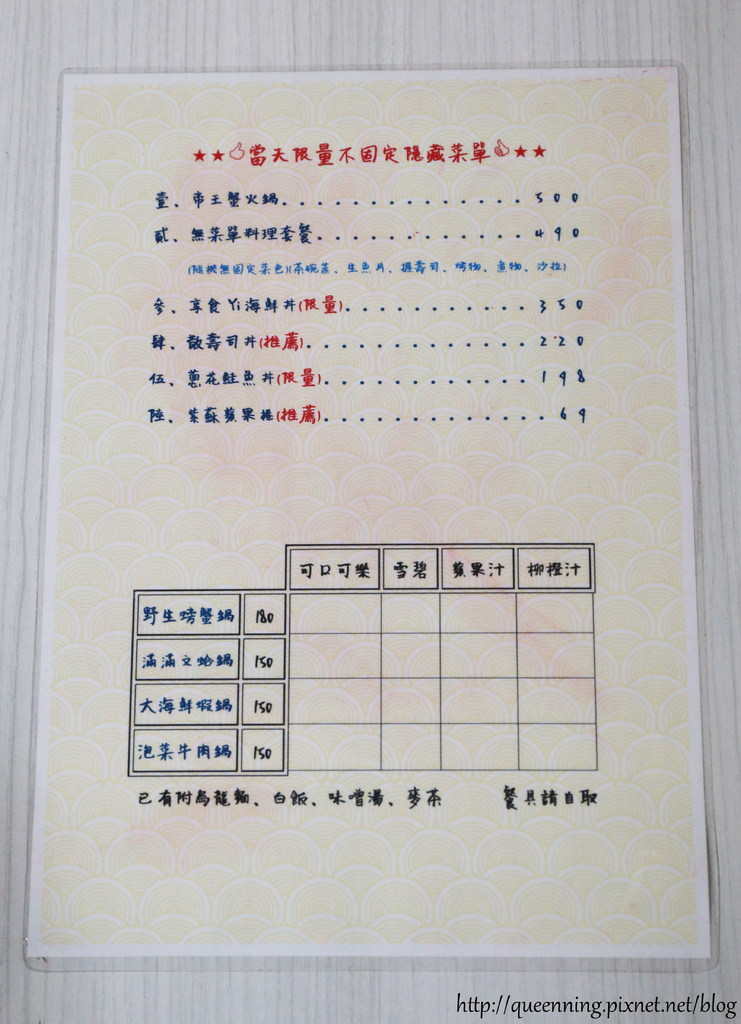 ★★當天限量不固定隱藏菜單★★
壹、帝王蟹火鍋..............500
貳、無菜單料理套餐............490
(隨機無固定菜色)(茶碗蒸、生魚片、握壽司、烤物、煮物、沙拉)
參、享食Yi海鮮丼(限量)...........350
肆、散壽司丼(推薦).............220
伍、蔥花鮭魚丼(限量)............198
陸、紫蘇蘋果捲(推薦).............69
可口可樂 雪碧 蘋果汁 柳橙汁
野生螃蟹鍋 180
滿滿文蛤鍋 150
大海鮮蝦鍋 150
泡菜牛肉鍋 150
已有附烏龍麵、白飯、味噌湯、麥茶 餐具請自取
http://queenning.pixnet.net/blog